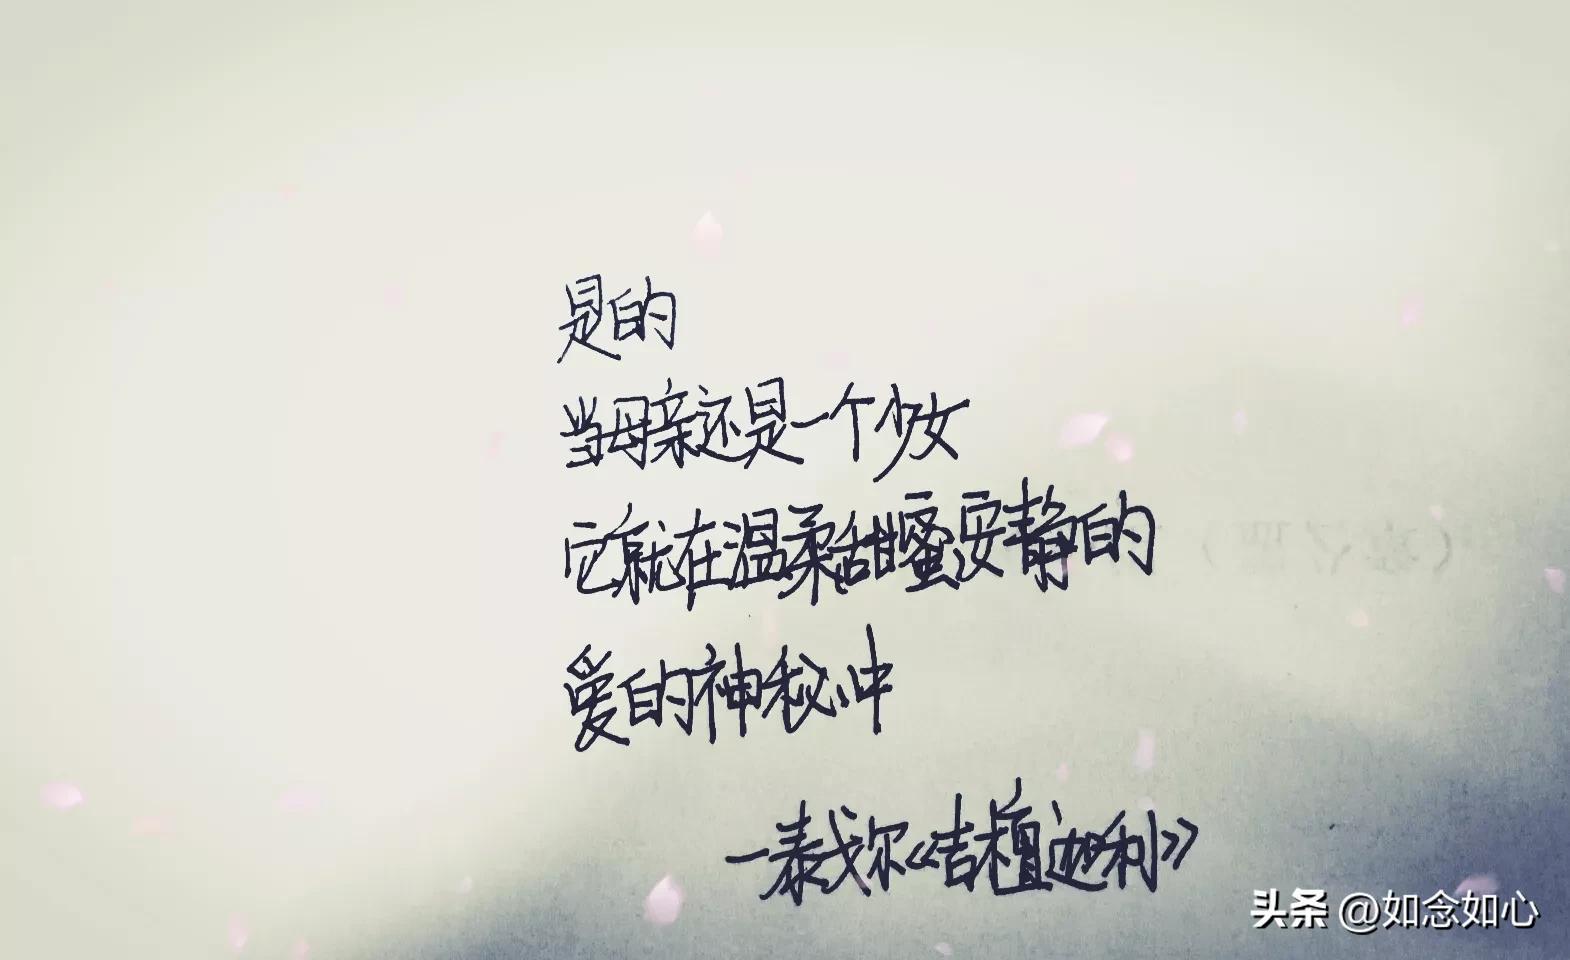 是的
当母亲还是一个少女
它就在温柔甜蜜安静的
爱的神秘中
一泰戈尔《吉檀迦利》
头条 @如念如心